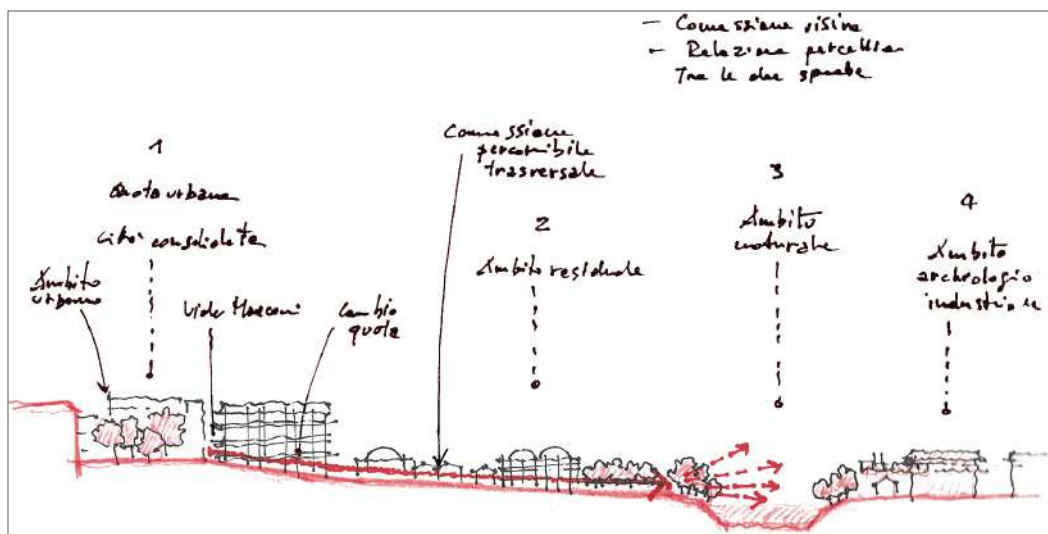 - Connessione visiva
- Relazione percettiva
Tra le due sponde
1
Quota urbana
città consolidata
Ambito
urbano
Viale Marconi
Cambio
quota
Connessione
percorribile
trasversale
2
Ambito residuale
3
Ambito
naturale
4
Ambito
archeologia
industriale